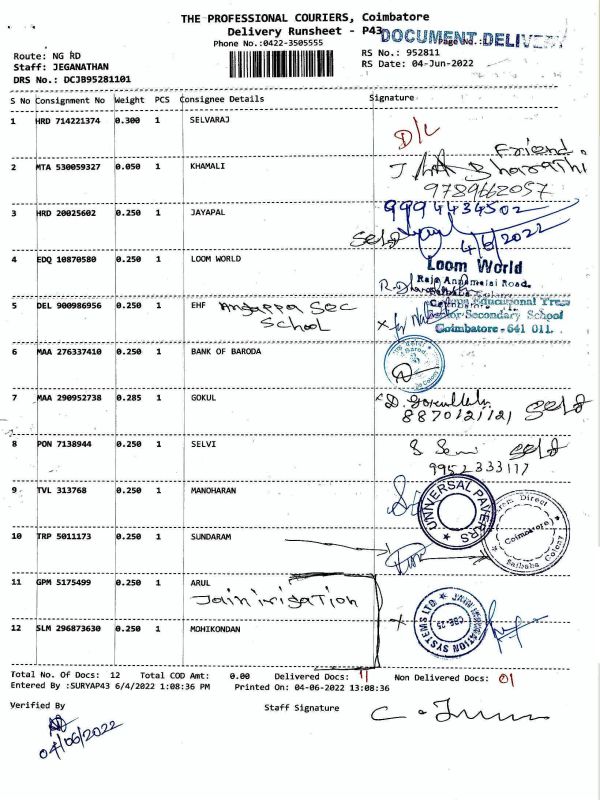 THE PROFESSIONAL COURIERS, Coimbatore
Delivery Runsheet - P43
DOCUMENT DELIVERY
Phone No.:0422-3505555
Page No.:
Route: NG RD
RS No.: 952811
Staff: JEGANATHAN
RS Date: 04-Jun-2022
DRS No.: DCJB95281101
S No Consignment No Weight PCS Consignee Details Signature
1 HRD 714221374 0.300 1 SELVARAJ
D/L
Friend
2 MTA 530059327 0.050 1 KHAMALI
Bharathi
9789662057
3 HRD 20025602 0.250 1 JAYAPAL
9994434502
Self
4/6/2022
4 EDQ 10870580 0.250 1 LOOM WORLD
Loom World
Raja Annamalai Road.
5 DEL 900986956 0.250 1 EHF Angappa Sec
School
Educational Trust
Secondary School
Coimbatore - 641 011.
6 MAA 276337410 0.250 1 BANK OF BARODA
7 MAA 290952738 0.285 1 GOKUL
8870121121 Self
8 PON 7138944 0.250 1 SELVI
Self
9952333117
9 TVL 313768 0.250 1 MANOHARAN
UNIVERSAL PAVERS
10 TRP 5011173 0.250 1 SUNDARAM
Direct
(Coimbatore)
Saibaba Colony
11 GPM 5175499 0.250 1 ARUL
Jain irigation
JAIN IRRIGATION SYSTEMS LTD
CBE-25
12 SLM 296873630 0.250 1 MOHIKONDAN
Total No. Of Docs: 12 Total COD Amt: 0.00 Delivered Docs: 11 Non Delivered Docs: 01
Entered By :SURYAP43 6/4/2022 1:08:36 PM Printed On: 04-06-2022 13:08:36
Verified By
Staff Signature
04/06/2022